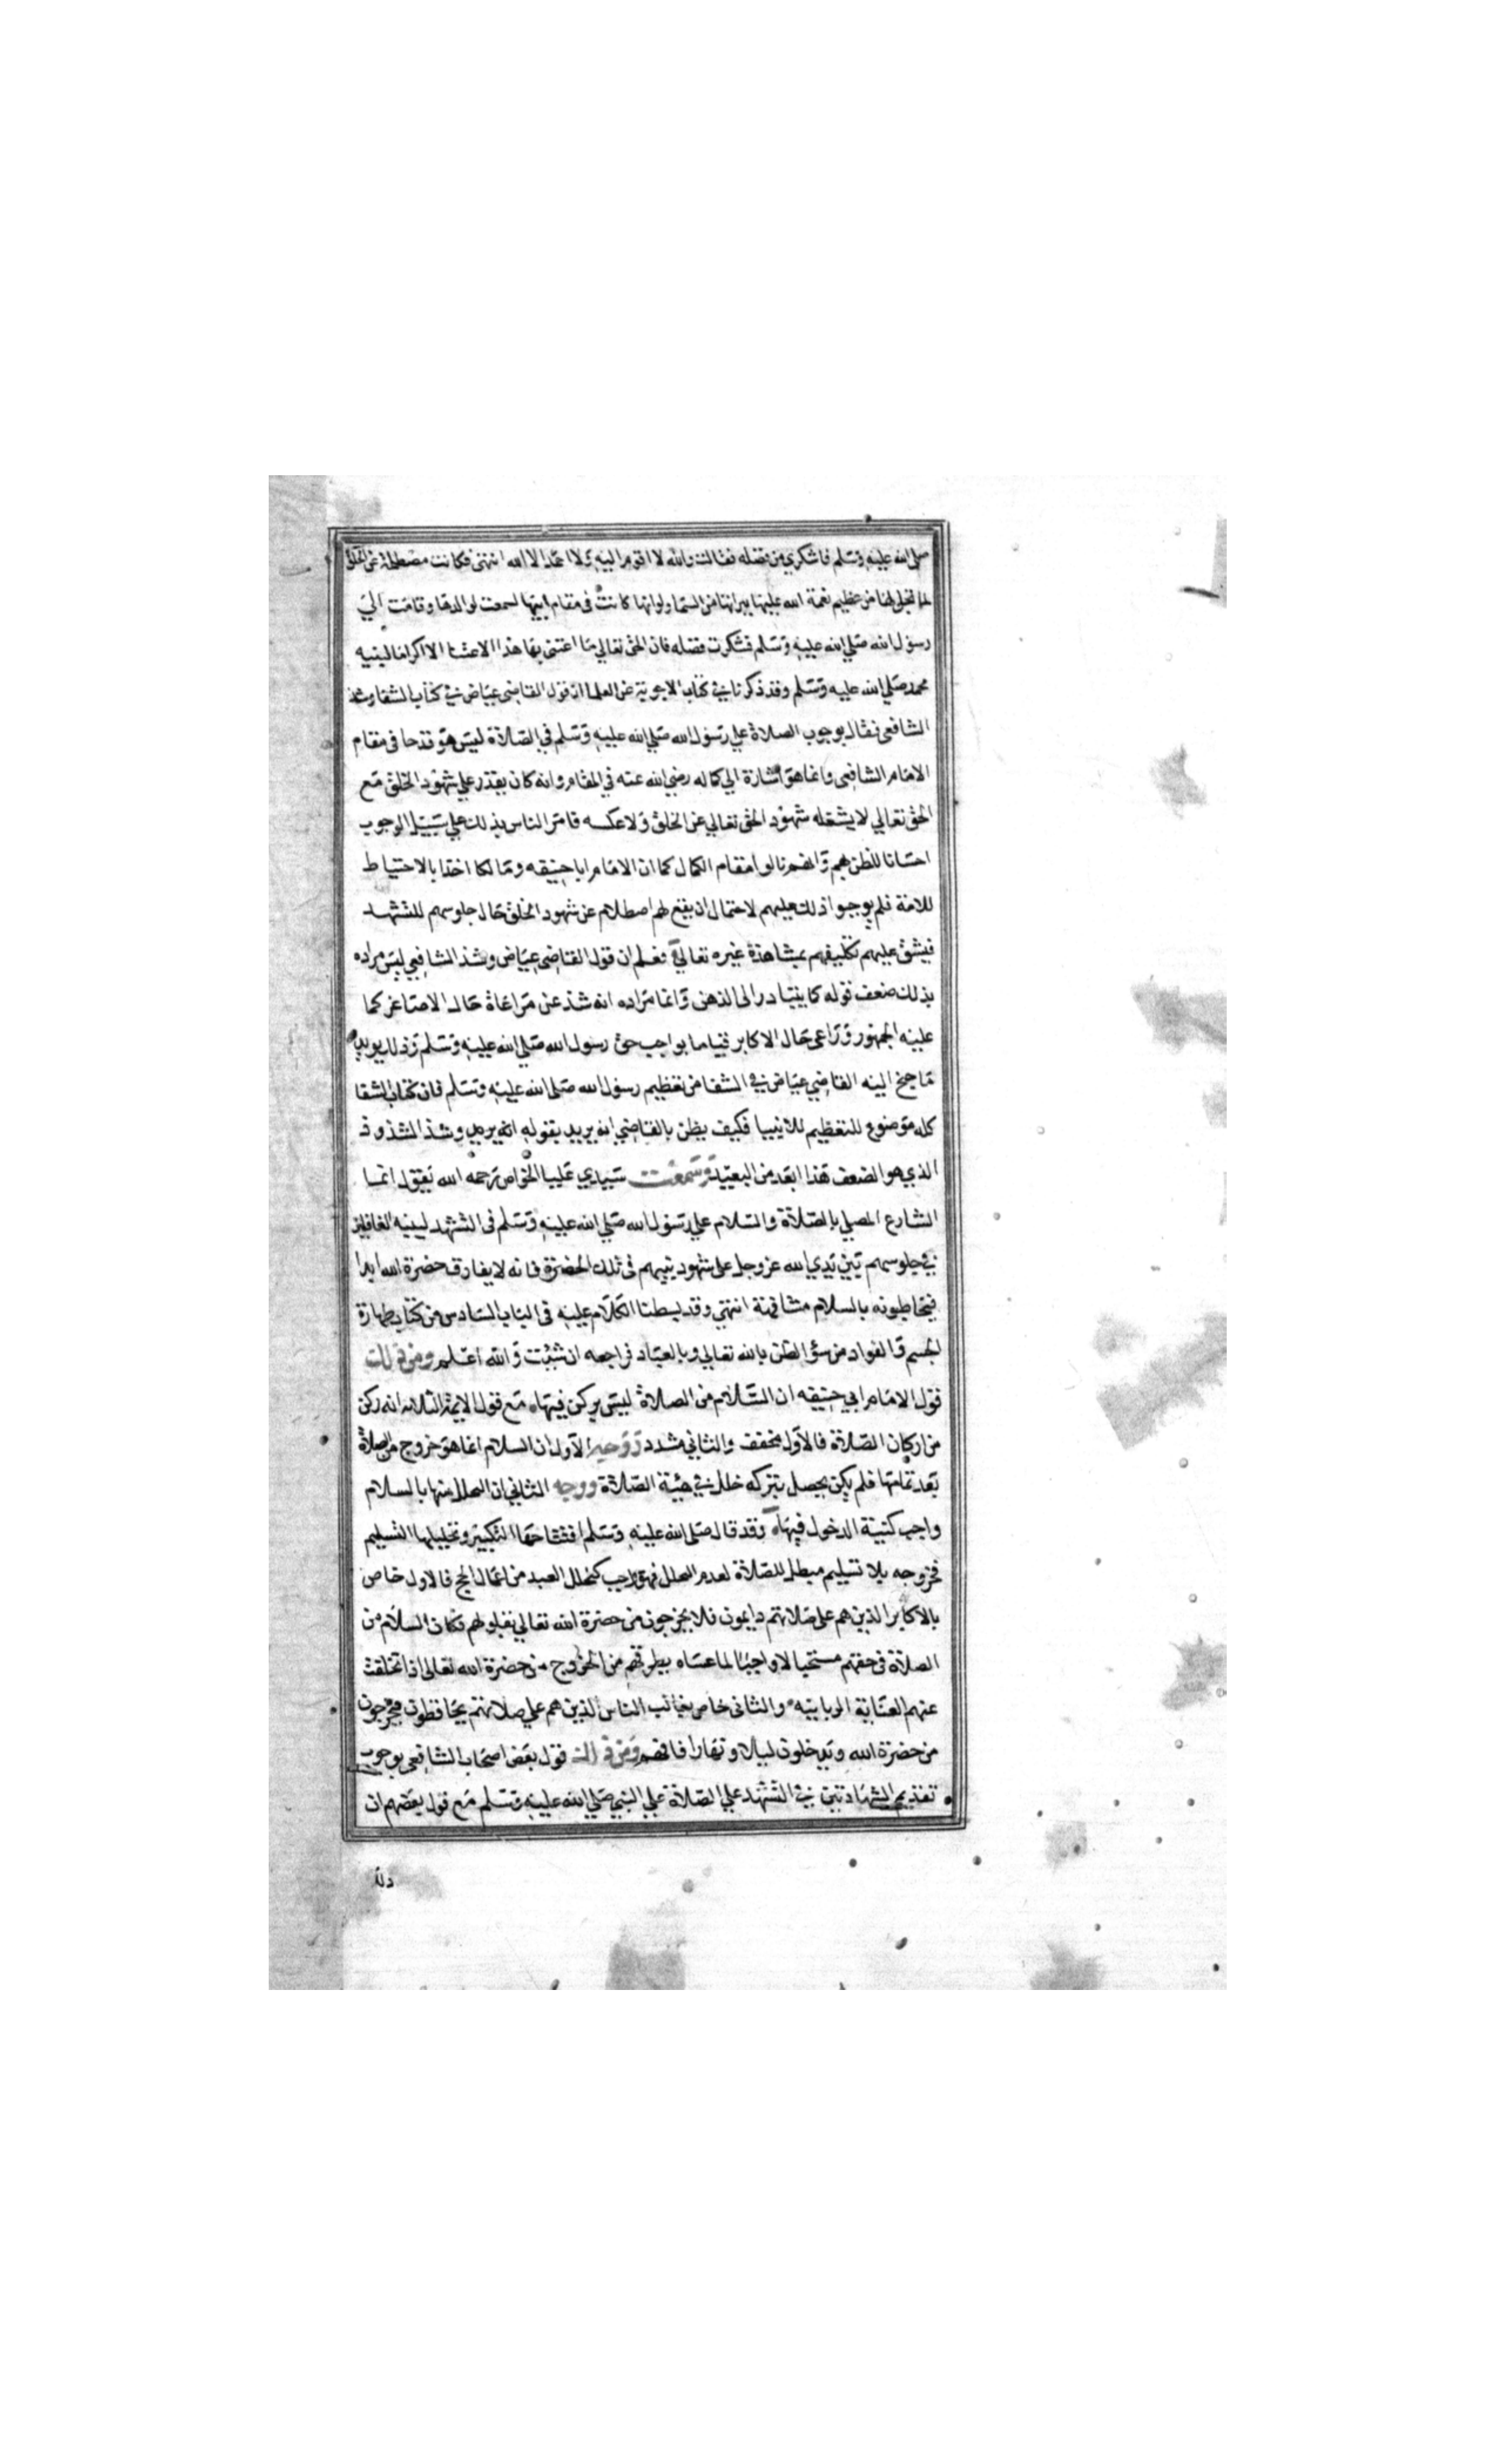 صلى الله عليه وسلم فاشكري من فضله فقالت والله لا اقوم اليه ولا احمد الا الله انتهى فكانت مصطلمة عن الخلق
لما تجلى لها من عظيم نعمة الله عليها ببراتها من السما ولو انها كانت في مقام ابيها لسمعت لوالدها وقامت الي
رسول الله صلي الله عليه وسلم فشكرت فضله فان الحق تعالي ما اعتنى بها هذا الاعتنا الا اكراما لنبيه
محمد صلي الله عليه وسلم وقد ذكرنا في كتاب الاجوبة عن العلما ان قول القاضي عياض في كتاب الشفا وشذ
الشافعي فقال بوجوب الصلاة علي رسول الله صلي الله عليه وسلم في الصلاة ليس هو قدحا في مقام
الامام الشافعي وانما هو اشارة الي كماله رضي الله عنه في المقام وانه كان يقدر علي شهود الخلق مع
الحق تعالي لا يشغله شهود الحق تعالي عن الخلق ولا عكسه فامر الناس بذلك علي سبيل الوجوب
احسانا للظن بهم وانهم نالوا مقام الكمال كما ان الامام ابا حنيفه ومالكا اخذا بالاحتياط
للامة فلم يوجبوا ذلك عليهم لاحتمال ان يقع لهم اصطلام عن شهود الخلق حال جلوسهم للتشهد
فيشق عليهم تكليفهم بمشاهدة غيره تعالي فعلم ان قول القاضي عياض وشذ الشافعي ليس مراده
بذلك ضعف قوله كما يتبادر الى الذهن وانما مراده انه شذ عن مراعاة حال الاصاغر كما
عليه الجمهور وراعى حال الاكابر قياما بواجب حق رسول الله صلي الله عليه وسلم وذلك يويد
ما جنح اليه القاضي عياض في الشفا من تعظيم رسول الله صلى الله عليه وسلم فان كتاب الشفا
كله موضوع للتعظيم للانبيا فكيف يظن بالقاضي انه يريد بقوله وشذ الشذوذ
الذي هو الضعف هذا ابعد من البعيد وسمعت سيدي عليا الخواص رحمه الله يقول انما
الشارع المصلي بالصلاة والسلام علي رسول الله صلي الله عليه وسلم في التشهد لينبه الغافلين
في جلوسهم بين يدي الله عز وجل على شهود نبيهم في تلك الحضرة فانه لا يفارق حضرة الله ابدا
فيخاطبونه بالسلام مشافهة انتهي وقد بسطنا الكلام عليه في الباب السادس من كتاب طهارة
الجسم والفواد من سؤ الظن بالله تعالي وبالعباد فراجعه ان شئت والله اعلم ومن ذلك
قول الامام ابي حنيفه ان السلام من الصلاة ليس بركن فيها مع قول الايمة الثلاثه انه ركن
من اركان الصلاة فالاول مخفف والثاني مشدد ووجه الاول ان السلام انما هو خروج من الصلاة
بعد تمامها فلم يكن يحصل بتركه خلل في هيئة الصلاة ووجه الثاني ان التحلل منها بالسلام
واجب كنية الدخول فيها وقد قال صلى الله عليه وسلم افتتاحها التكبير وتحليلها التسليم
فخروجه بلا تسليم مبطل للصلاة لعدم التحلل فهو واجب كتحلل العبد من اعمال الحج فالاول خاص
بالاكابر الذين هم على صلاتهم دايمون فلا يخرجون من حضرة الله تعالي بقلوبهم فكان السلام من
الصلاة في حقهم مستحبا لا واجبا لما عساه يطرقهم من الخروج من حضرة الله تعالى اذا تخلفت
عنهم العناية الربانيه والثانى خاص بغالب الناس الذين هم علي صلاتهم يحافظون فيخرجون
من حضرة الله ويدخلون ليلا ونهارا فافهم ومن ذلك قول بعض اصحاب الشافعي بوجوب
تقديم الشهادتين في التشهد علي الصلاة علي النبي صلي الله عليه وسلم مع قول بعضهم ان
ذلك